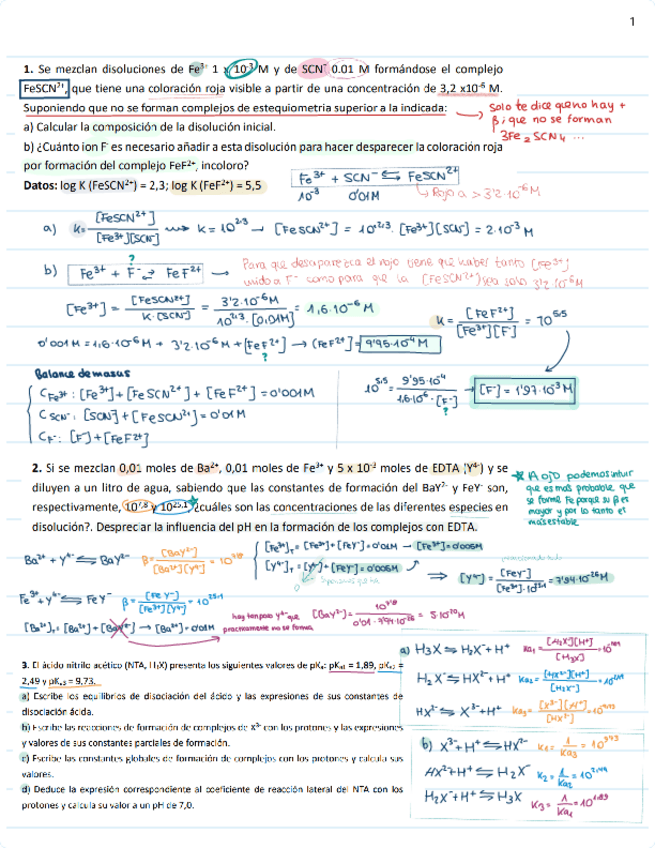 1
1. Se mezclan disoluciones de Fe³⁺ 1 x 10⁻³ M y de SCN⁻ 0.01 M formándose el complejo
FeSCN²⁺, que tiene una coloración roja visible a partir de una concentración de 3,2 x10⁻⁶ M.
Suponiendo que no se forman complejos de estequiometria superior a la indicada:
Solo te dice que no hay +
β; que no se forman
3Fe₂SCN₄ ...
a) Calcular la composición de la disolución inicial.
b) ¿Cuánto ion F⁻ es necesario añadir a esta disolución para hacer desparecer la coloración roja
por formación del complejo FeF²⁺, incoloro?
Datos: log K (FeSCN²⁺) = 2,3; log K (FeF²⁺) = 5,5
Fe³⁺ + SCN⁻ ⇆ FeSCN²⁺
10⁻³ 0'01M
↳ Rojo a > 3'2·10⁻⁶M
a) K = [FeSCN²⁺] / [Fe³⁺][SCN⁻] → K = 10²'³ → [FeSCN²⁺] = 10²'³·[Fe³⁺][SCN⁻] = 2·10⁻³ M
b) Fe³⁺ + F⁻ ⇄ FeF²⁺ →
?
Para que desaparezca el rojo tiene que haber tanto [Fe³⁺]
unido a F⁻ como para que la [FeSCN²⁺] sea solo 3'2·10⁻⁶M
[Fe³⁺] = [FeSCN²⁺] / K·[SCN⁻] = 3'2·10⁻⁶M / 10²'³·[0,01M] = 1,6·10⁻⁶ M
K = [FeF²⁺] / [Fe³⁺][F⁻] = 10⁵'⁵
0'001M = 1,6·10⁻⁶M + 3'2·10⁻⁶M + [FeF²⁺] → [FeF²⁺] = 9'95·10⁻⁴ M
?
Balance de masas
C Fe³⁺: [Fe³⁺] + [FeSCN²⁺] + [FeF²⁺] = 0'001M
C SCN⁻: [SCN⁻] + [FeSCN²⁺] = 0'01M
C F⁻: [F⁻] + [FeF²⁺]
10⁵'⁵ = 9'95·10⁻⁴ / 1,6·10⁻⁶·[F⁻] → [F⁻] = 1'97·10⁻³ M
?
2. Si se mezclan 0,01 moles de Ba²⁺, 0,01 moles de Fe³⁺ y 5 x 10⁻³ moles de EDTA (Y⁴⁻) y se
diluyen a un litro de agua, sabiendo que las constantes de formación del BaY²⁻ y FeY⁻ son,
respectivamente, 10⁷'⁸ y 10²⁵'¹ ¿cuáles son las concentraciones de las diferentes especies en
disolución?. Despreciar la influencia del pH en la formación de los complejos con EDTA.
★ A OJO podemos intuir
que es mas probable que
se forme Fe porque su β es
mayor y por lo tanto el
más estable
Ba²⁺ + Y⁴⁻ ⇆ BaY²⁻ β = [BaY²⁻] / [Ba²⁺][Y⁴⁻] = 10⁷'⁸
[Fe³⁺]ₜ = [Fe³⁺] + [FeY⁻] = 0'01M → [Fe³⁺] = 0'005M
[Y⁴⁻]ₜ = [Y⁴⁻] + [FeY⁻] = 0'005M
⇒ [Y⁴⁻] = [FeY⁻] / [Fe³⁺]·10²⁵'¹ = 7'94·10⁻²⁶M
Fe³⁺ + Y⁴⁻ ⇆ FeY⁻ β = [FeY⁻] / [Fe³⁺][Y⁴⁻] = 10²⁵'¹
[Ba²⁺]ₜ = [Ba²⁺] + [BaY²⁻] → [Ba²⁺] = 0'01M
hay tan poco Y⁴⁻ que
practicamente no se forma
3. El ácido nitrilo acético (NTA, H₃X) presenta los siguientes valores de pKₐ: pKₐ₁ = 1,89, pKₐ₂ =
2,49 y pKₐ₃ = 9,73.
a) Escribe los equilibrios de disociación del ácido y las expresiones de sus constantes de
disociación ácida.
b) Escribe las reacciones de formación de complejos de X³⁻ con los protones y las expresiones
y valores de sus constantes parciales de formación.
c) Escribe las constantes globales de formación de complejos con los protones y calcula sus
valores.
d) Deduce la expresión correspondiente al coeficiente de reacción lateral del NTA con los
protones y calcula su valor a un pH de 7,0.
a) H₃X ⇆ H₂X⁻ + H⁺ Ka₁ = [H₂X⁻][H⁺] / [H₃X]
H₂X⁻ ⇆ HX²⁻ + H⁺ Ka₂ = [HX²⁻][H⁺] / [H₂X⁻]
HX²⁻ ⇆ X³⁻ + H⁺ Ka₃ = [X³⁻][H⁺] / [HX²⁻]
b) X³⁻ + H⁺ ⇆ HX²⁻ K₁ = 1 / Ka₃ = 10⁹'⁷³
HX²⁻ + H⁺ ⇆ H₂X⁻ K₂ = 1 / Ka₂ = 10²'⁴⁹
H₂X⁻ + H⁺ ⇆ H₃X K₃ = 1 / Ka₁ = 10¹'⁸⁹